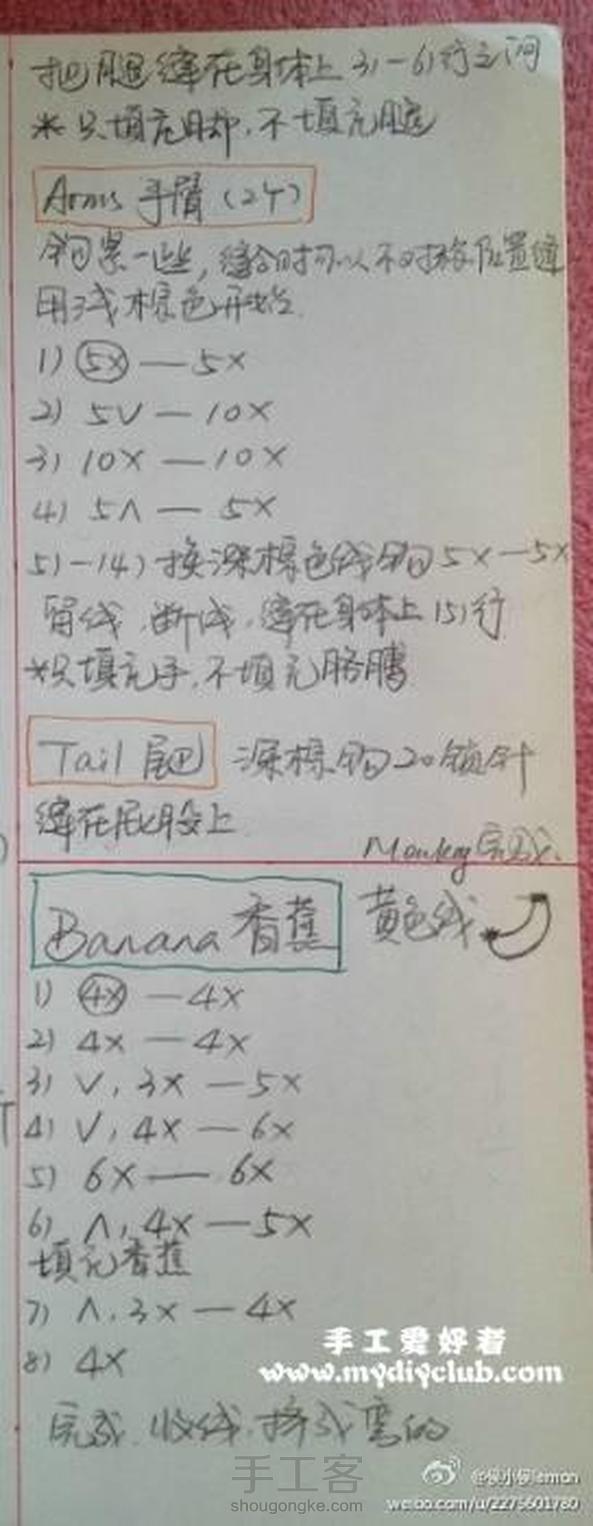 把腿缝在身体上 3)-6)行之间
*只填充脚,不填充腿
Arms 手臂(2个)
钩紧一些,缝合时可以不对称位置缝
用浅棕色开始
1) 5X — 5X
2) 5V — 10X
3) 10X — 10X
4) 5Λ — 5X
5)-14) 换深棕色线钩 5X — 5X
留线,断线,缝在身体上 15)行
*只填充手,不填充胳膊
Tail 尾巴 深棕钩20锁针
缝在屁股上
Monkey 完成
Banana 香蕉 黄色线
1) 4X — 4X
2) 4X — 4X
3) V, 3X — 5X
4) V, 4X — 6X
5) 6X — 6X
6) Λ, 4X — 5X
填充香蕉
7) Λ, 3X — 4X
8) 4X
完成,收线,择成弯的
手工爱好者
www.mydiyclub.com
手工客
shougongke.com
weibo.com/u/2275601780